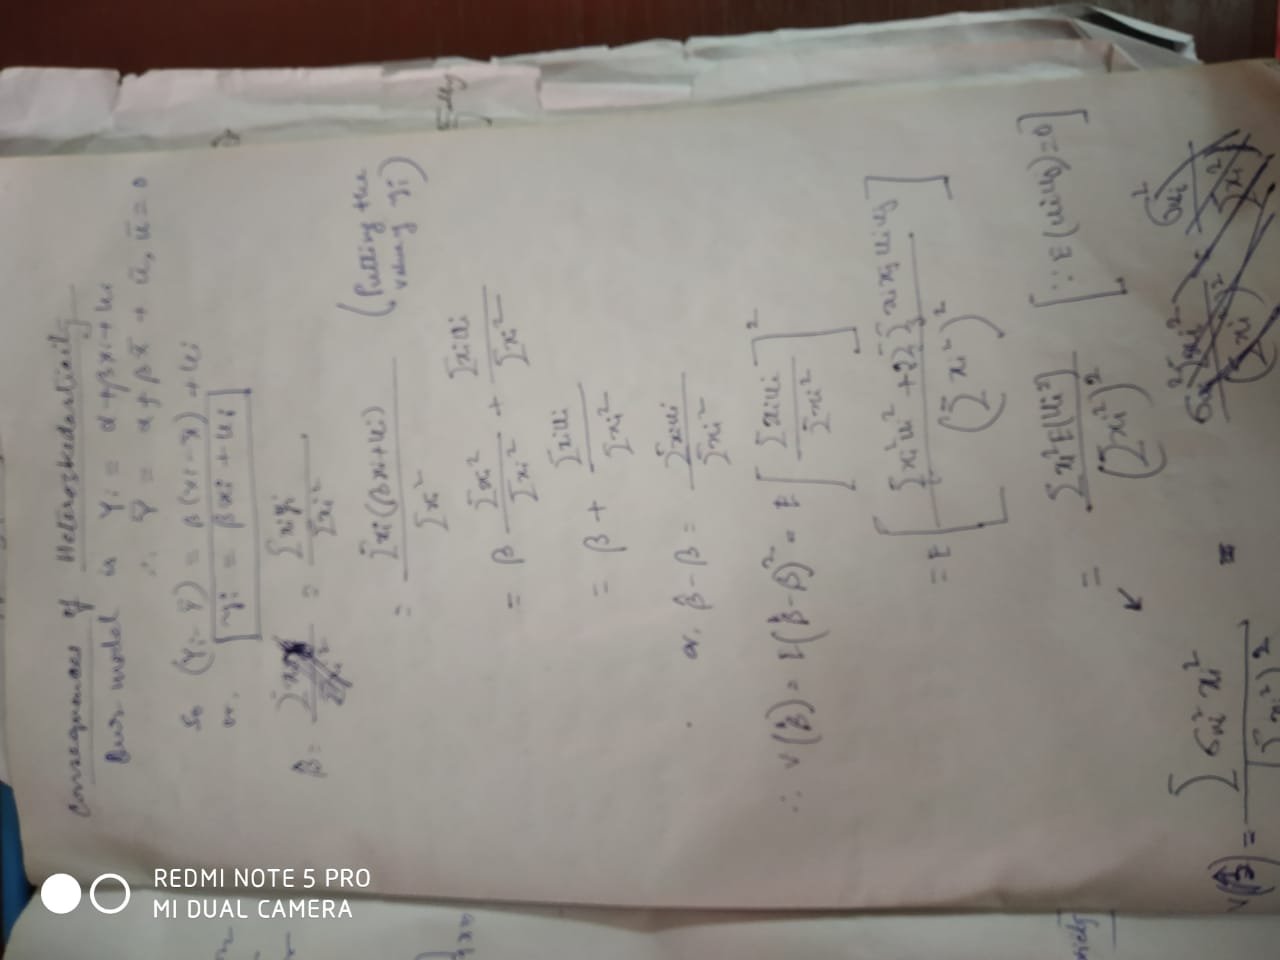 Consequences of Heteroskedasticity
Our model is Yi = α + βxi + ui
∴ Ȳ = α + βx̄ + ū, ū = 0
So (Yi - Ȳ) = β(xi - x̄) + ui
or, yi = βxi + ui
β̂ = = Σxiyi / Σxi²
= Σxi(βxi + ui) / Σxi² (Putting the value of yi)
= β Σxi² / Σxi² + Σxiui / Σxi²
= β + Σxiui / Σxi²
or, β̂ - β = Σxiui / Σxi²
∴ V(β̂) = E(β̂ - β)² = E[Σxiui / Σxi²]²
= E[Σxi²ui² + 2ΣΣ xixjuiuj / (Σxi²)²]
= Σxi²E(ui²) / (Σxi²)² [∵ E(uiuj) = 0]
V(β̂) = Σσui²xi² / (Σxi²)² =
REDMI NOTE 5 PRO
MI DUAL CAMERA